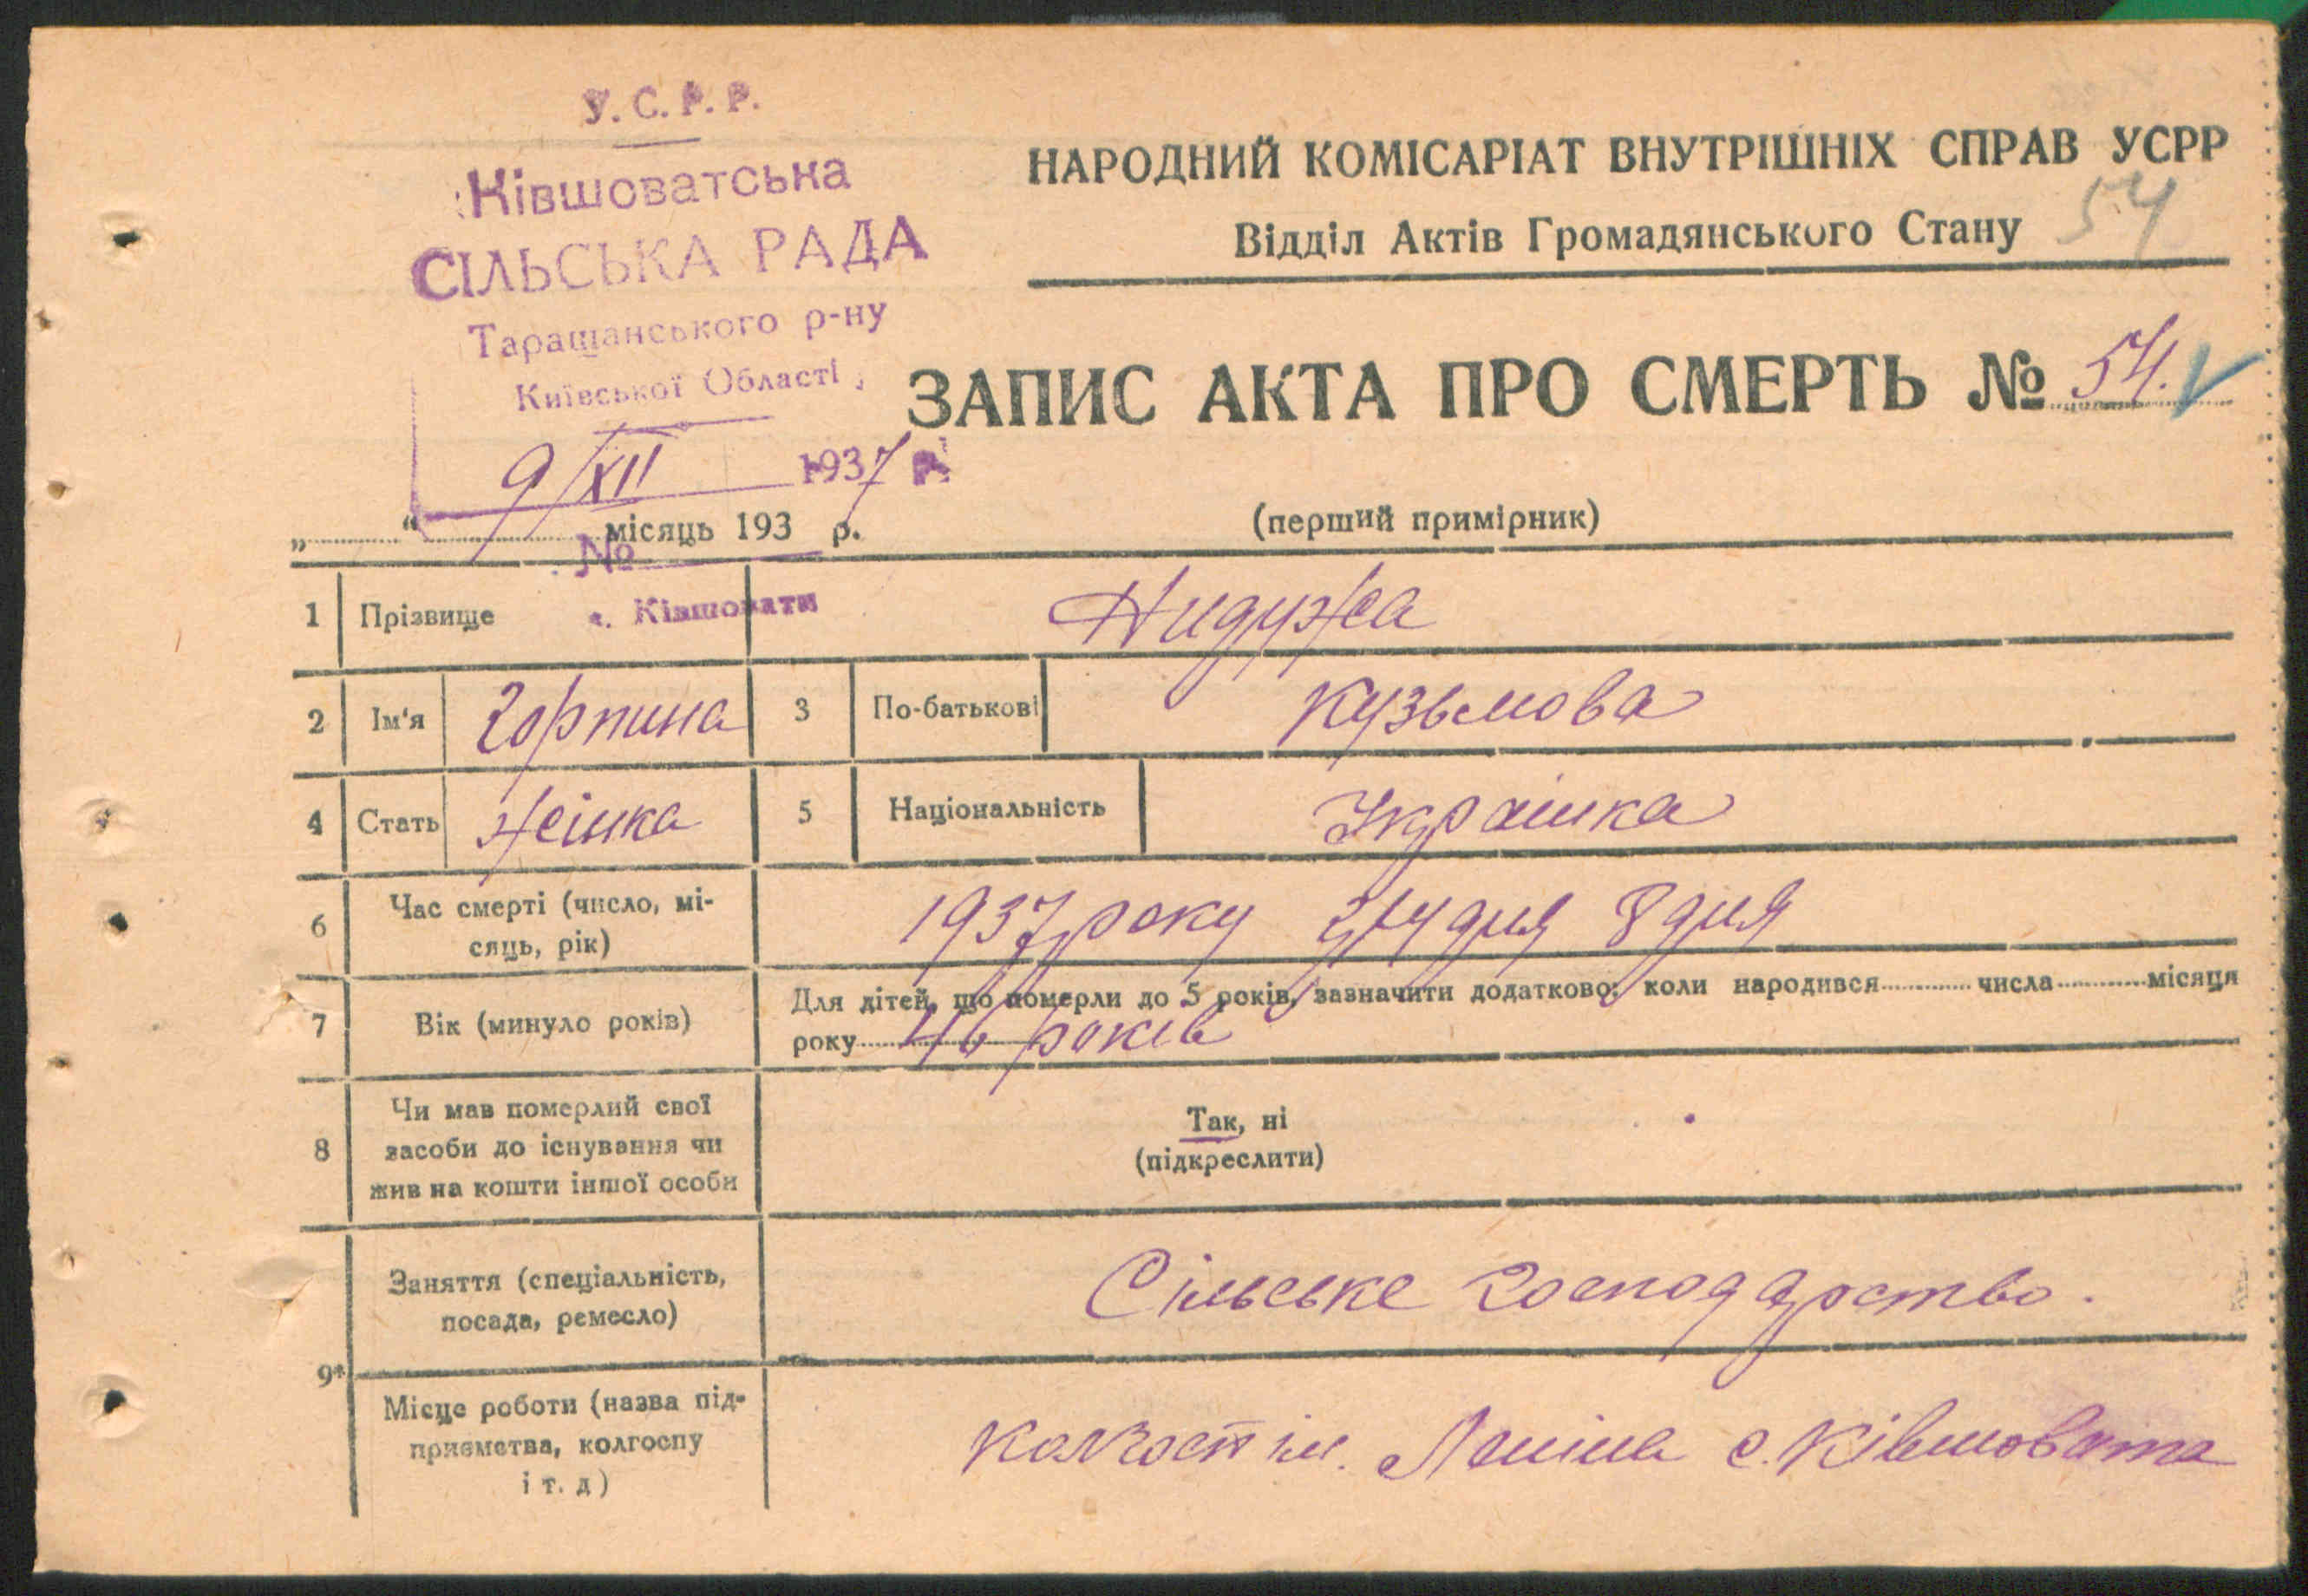 У. С. Р. Р.
Ківшоватська
СІЛЬСЬКА РАДА
Таращанського р-ну
Київської Області
9/XII 1937 р.
№
с. Ківшовати
НАРОДНИЙ КОМІСАРІАТ ВНУТРІШНІХ СПРАВ УСРР
54
Відділ Актів Громадянського Стану
ЗАПИС АКТА ПРО СМЕРТЬ № 54.
„ “ місяць 193 р.
(перший примірник)
1 Прізвище Нидужа
2 Ім'я Горпина 3 По-батькові Кузьмова
4 Стать жінка 5 Національність Українка
6 Час смерті (число, мі-
сяць, рік)
1937 року грудня 8 дня
7 Вік (минуло років)
Для дітей, що померли до 5 років, зазначити додатково: коли народився числа місяця
року 46 років
8 Чи мав померлий свої
засоби до існування чи
жив на кошти іншої особи
Так, ні
(підкреслити)
9*
Заняття (спеціальність,
посада, ремесло)
Сільське господарство.
Місце роботи (назва під-
приємства, колгоспу
і т. д)
колгосп ім. Леніна с. Ківшовата